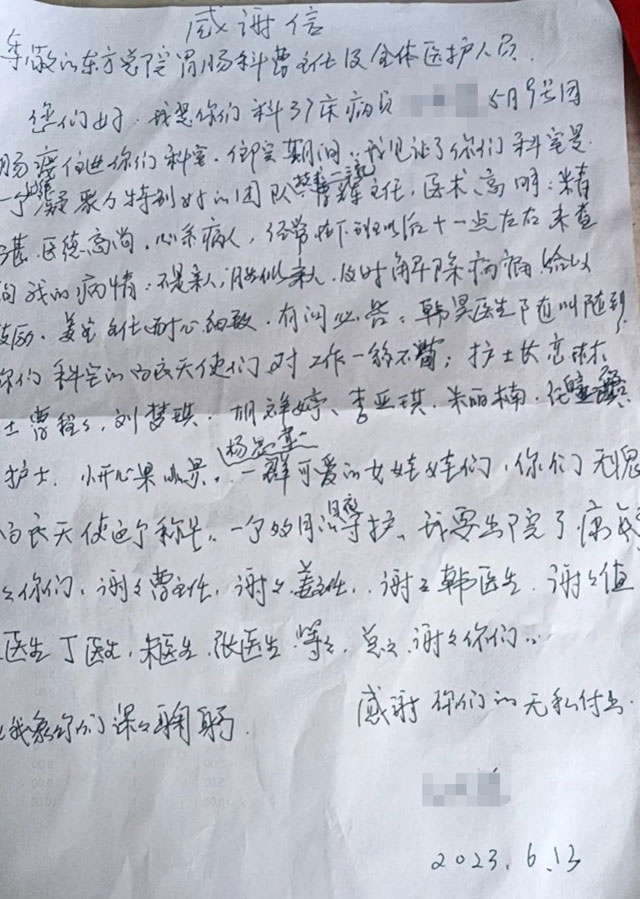 感谢信
尊敬的东方总院胃肠科曹主任及全体医护人员.
您们好.我是你们科37床病员 5月9号因
肠癌住进你们科室.住院期间.我见证了你们科室是
一个凝聚力特别好的团队.曹辉主任,医术高明:精
湛.医德高尚.心系病人,经常性下班以后十一点左右来查
问我的病情:不是亲人,胜似亲人.及时解除病痛.给以
鼓励.姜主任耐心细致.有问必答:韩昊医生随叫随到
你们科室的白衣天使们对工作一丝不苟;护士长
士曹程程,刘梦琪.胡祥婷、李亚琪.朱丽楠.任
护士.小开心果 杨
一群可爱的女娃娃们,你们无愧
白衣天使这个称号.一个多月的守护.我要出院了
谢你们.谢谢曹主任,谢谢姜主任,谢谢韩医生.谢谢值
医生丁医生,宋医生.张医生等等.总之.谢谢你们..
我象你们深深鞠躬. 感谢你们的无私付出.
2023.6.13